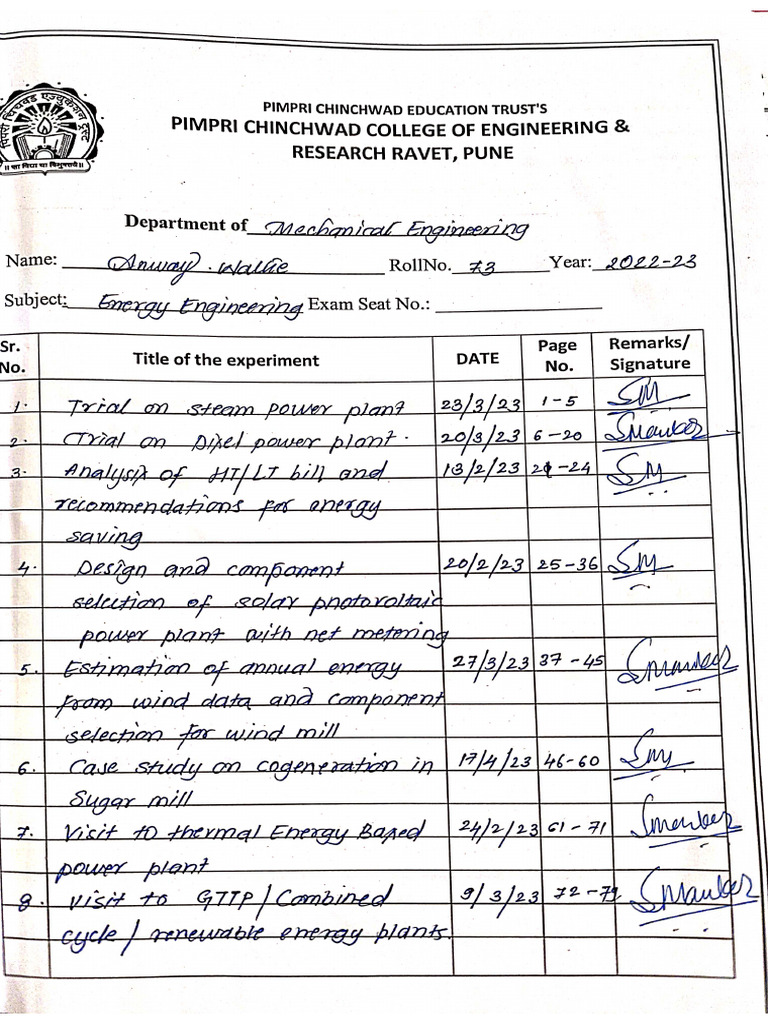 पिंपरी चिंचवड एज्युकेशन ट्रस्ट
|| सा विद्या या विमुक्तये ||
PIMPRI CHINCHWAD EDUCATION TRUST'S
PIMPRI CHINCHWAD COLLEGE OF ENGINEERING &
RESEARCH RAVET, PUNE
Department of Mechanical Engineering
Name: Anway. RollNo. 73 Year: 2022-23
Subject: Energy Engineering Exam Seat No.:
Sr. No. Title of the experiment DATE Page No. Remarks/ Signature
1. Trial on steam power plant 23/3/23 1-5 SM
2. Trial on Disel power plant. 20/3/23 6-20
3. Analysis of HT/LT bill and 13/2/23 21-24 SM
recommendations for energy
saving
4. Design and component 20/2/23 25-36 SM
selection of solar photovoltaic
power plant with net metering
5. Estimation of annual energy 27/3/23 37-45
from wind data and component
selection for wind mill
6. Case study on cogeneration in 17/4/23 46-60
Sugar mill
7. Visit to thermal Energy Based 24/2/23 61-71
power plant
8. Visit to GTTP/Combined 9/3/23 72-79
cycle/renewable energy plants.